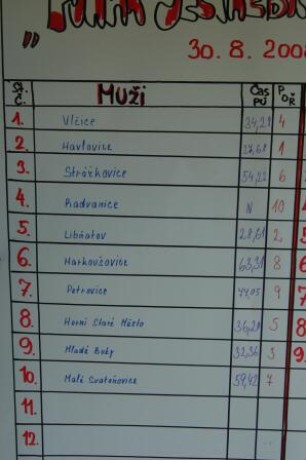 30. 8. 200
St. Č. MUŽI ČAS PÚ POŘ
1. Vlčice 34,21 4
2. Havlovice 27,61 1
3. Strážkovice 54,22 6
4. Radvanice N 10
5. Libňatov 28,61 2.
6. Markoušovice 63,31 8
7. Petrovice 9
8. Horní Staré Město 36,20 5
9. Mladé Buky 32,36 3
10. Malé Svatoňovice 59,42 7
11.
12.